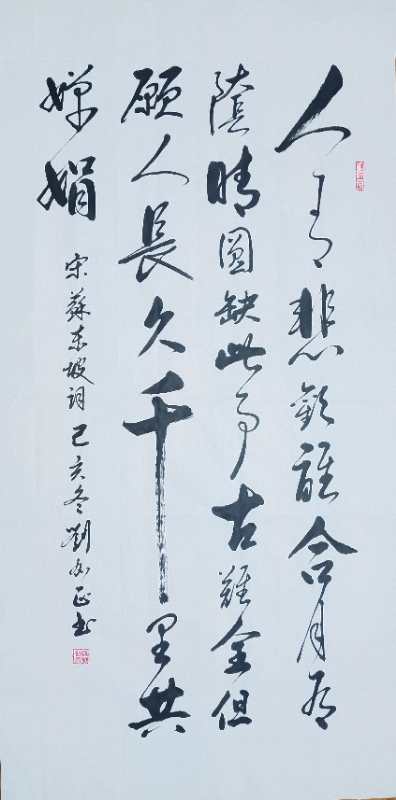 人有悲歡離合月有
陰晴圓缺此事古難全但
願人長久千里共
嬋娟
宋蘇東坡詞己亥冬劉正書